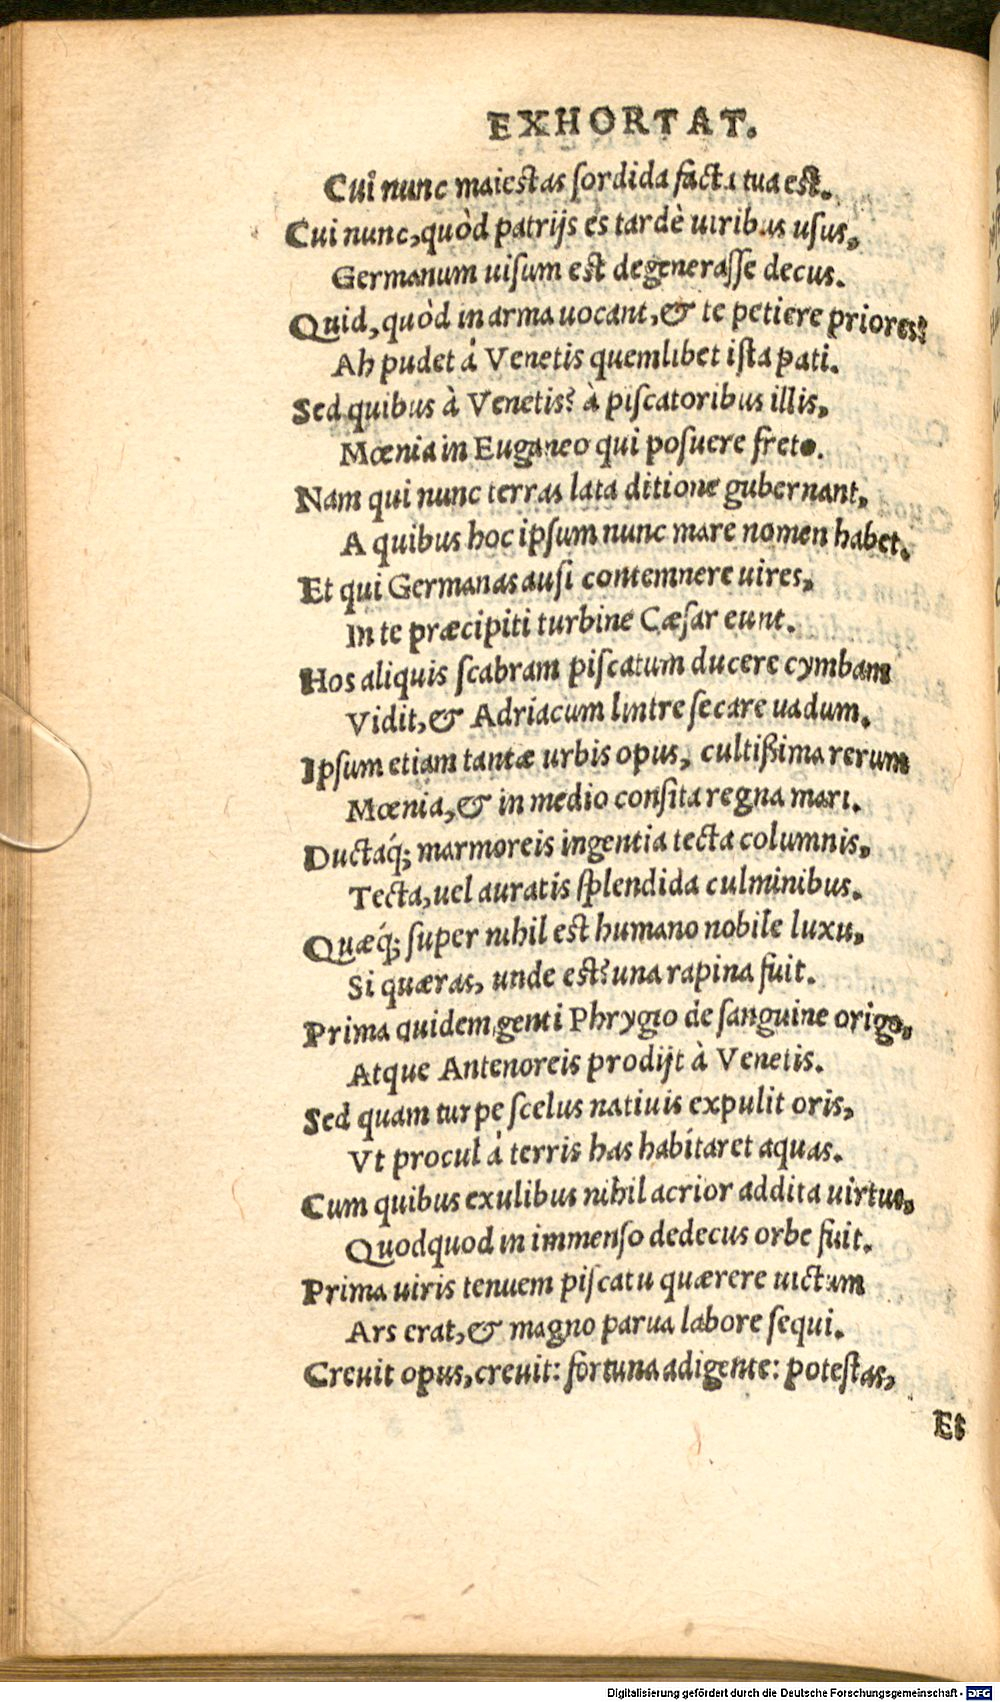 EXHORTAT.
Cui nunc maiestas sordida facta tua est.
Cui nunc, quòd patrijs es tardè uiribus usus,
Germanum uisum est degenerasse decus.
Quid, quòd in arma uocant, & te petiere priores?
Ah pudet á Venetis quemlibet ista pati.
Sed quibus à Venetis? à piscatoribus illis,
Mœnia in Euganeo qui posuere freto.
Nam qui nunc terras lata ditione gubernant,
A quibus hoc ipsum nunc mare nomen habet.
Et qui Germanas ausi contemnere uires,
In te præcipiti turbine Cæsar eunt.
Hos aliquis scabram piscatum ducere cymbam
Vidit, & Adriacum lintre secare uadum.
Ipsum etiam tantæ urbis opus, cultißima rerum
Mœnia, & in medio consita regna mari.
Ductaq́; marmoreis ingentia tecta columnis,
Tecta, uel auratis splendida culminibus.
Quæq́; super nihil est humano nobile luxu,
Si quæras, unde est? una rapina fuit.
Prima quidem genti Phrygio de sanguine origo,
Atque Antenoreis prodijt à Venetis.
Sed quam turpe scelus natiuis expulit oris,
Vt procul á terris has habitaret aquas.
Cum quibus exulibus nihil acrior addita uirtus,
Quodquod in immenso dedecus orbe fuit.
Prima uiris tenuem piscatu quærere uictum
Ars erat, & magno parua labore sequi.
Creuit opus, creuit: fortuna adigente: potestas,
Et
Digitalisierung gefördert durch die Deutsche Forschungsgemeinschaft - DFG